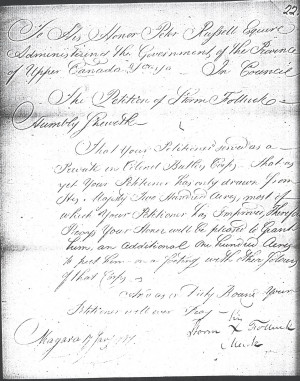 22
To His Honor Peter Russell Esquire
Administering the Government of the Province
of Upper Canada &c &c &c In Council
The Petition of Storm Follick
Humbly Sheweth
That Your Petitioner served as a
Private in Colonel Butlers Corps That as
yet Your Petitioner has only drawn from
His Majesty Two Hundred Acres, most of
which Your Petitioner has Improved, Therefore
Prays Your Honor will be pleased to Grant
him an additional One hundred Acres
to put him on a footing with other Soldiers
of that Corps
And as in Duty Bound Your
Petitioner will ever Pray
his
Storm X Follick
Mark
Niagara 17 Jany